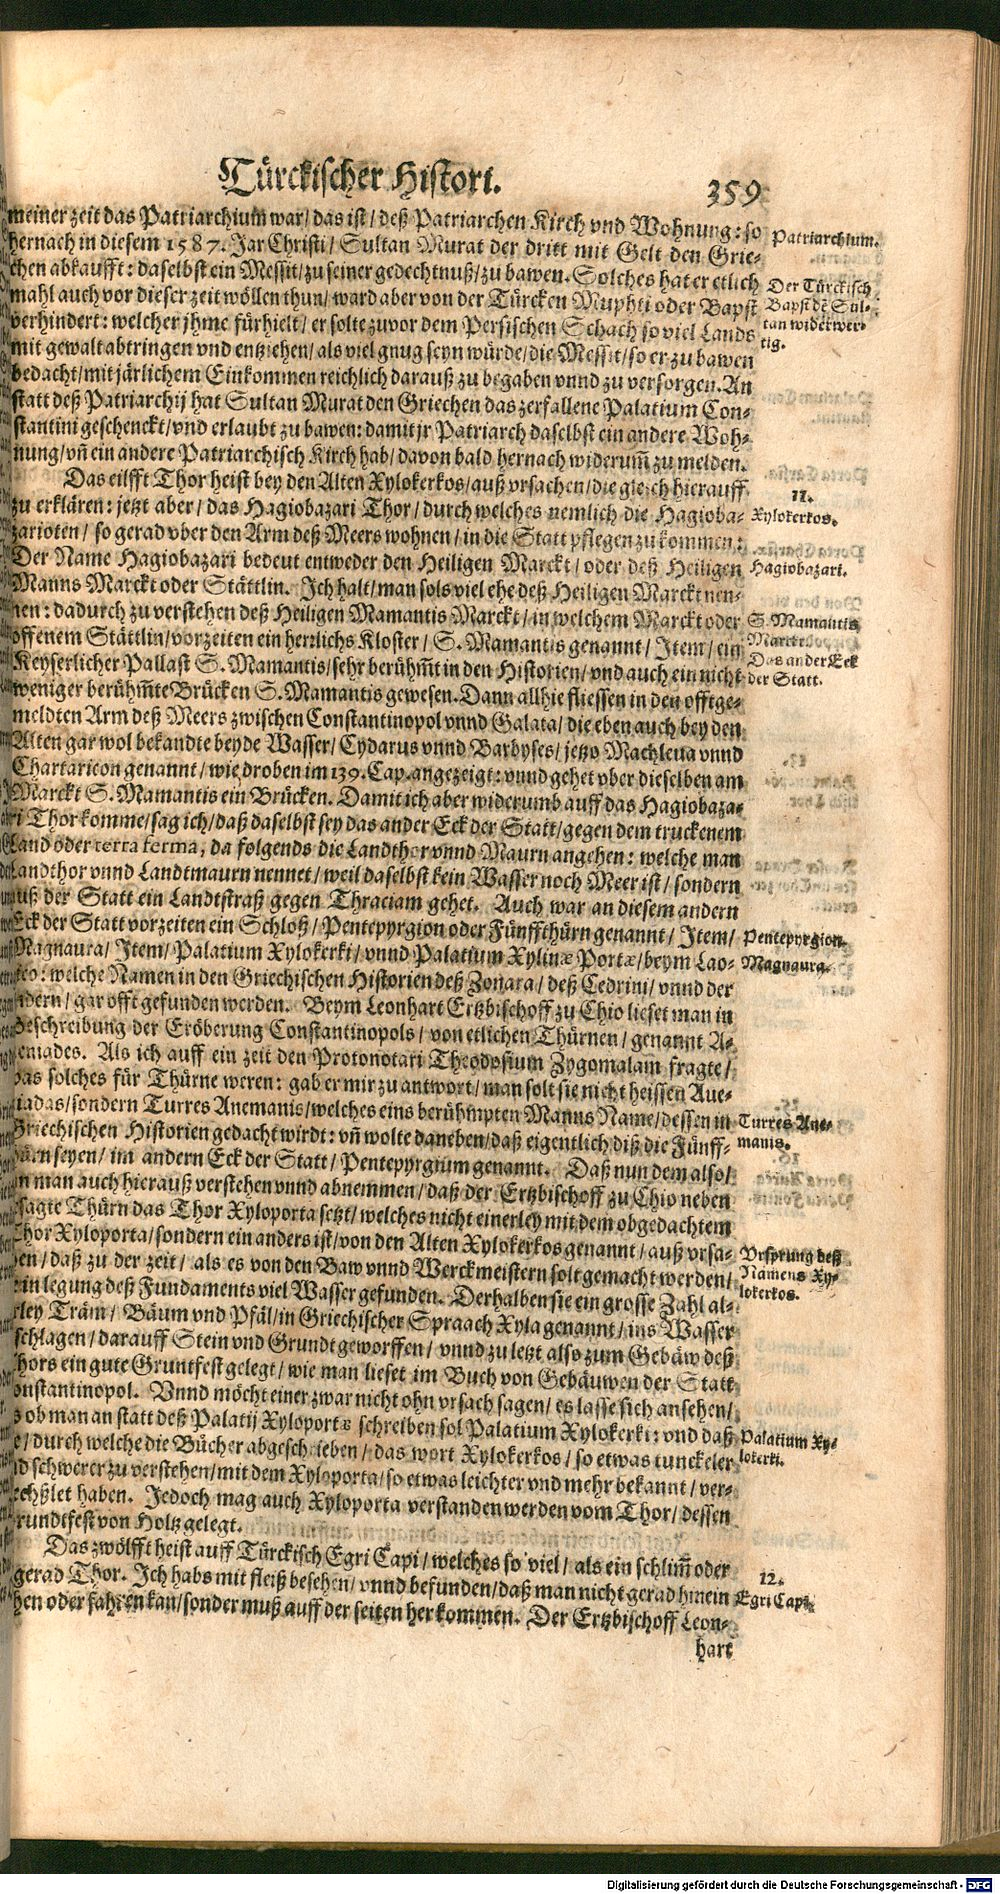 Türckischer Histori.
359
meiner zeit das Patriarchium war/ das ist/ deß Patriarchen Kirch vnd Wohnung: so
hernach in diesem 1587. Jar Christi/ Sultan Murat der dritt mit Gelt den Grie-
chen abkaufft: daselbst ein Messit/ zu seiner gedechtnuß/ zu bawen. Solches hat er etlich
mahl auch vor dieser zeit wöllen thun/ ward aber von der Türcken Muphti oder Bapst
verhindert: welcher jhme fürhielt/ er solte zuvor dem Persischen Schach so viel Lands
mit gewalt abtringen vnd entziehen/ als viel gnug seyn würde/ die Messit/ so er zu bawen
bedacht/ mit järlichem Einkommen reichlich darauß zu begaben vnnd zu versorgen. An
statt deß Patriarchij hat Sultan Murat den Griechen das zerfallene Palatium Con-
stantini geschenckt/ vnd erlaubt zu bawen: damit jr Patriarch daselbst ein andere Woh-
nung/ vñ ein andere Patriarchisch Kirch hab/ davon bald hernach widerum̃ zu melden.
Das eilfft Thor heist bey den Alten Xylokerkos/ auß vrsachen/ die gleich hierauff
zu erklären: jetzt aber/ das Hagiobazari Thor/ durch welches nemlich die Hagioba-
zarioten/ so gerad vber den Arm deß Meers wohnen/ in die Statt pflegen zu kommen:
Der Name Hagiobazari bedeut entweder den Heiligen Marckt/ oder deß Heiligen
Manns Marckt oder Stättlin. Ich halt/ man sols viel ehe deß Heiligen Marckt nen-
nen: dadurch zu verstehen deß Heiligen Mamantis Marckt/ in welchem Marckt oder
offenem Stättlin/ vorzeiten ein herrlichs Kloster/ S. Mamantis genannt/ Item/ ein
Keyserlicher Pallast S. Mamantis/ sehr berühm̃t in den Historien/ vnd auch ein nicht
weniger berühm̃te Brücken S. Mamantis gewesen. Dann allhie fliessen in den offtge-
meldten Arm deß Meers zwischen Constantinopol vnnd Galata/ die eben auch bey den
Alten gar wol bekandte beyde Wasser/ Cydarus vnnd Barbyses/ jetzo Machleua vnnd
Chartaricon genannt/ wie droben im 139. Cap. angezeigt: vnnd gehet vber dieselben am
Marckt S. Mamantis ein Brücken. Damit ich aber widerumb auff das Hagiobaza-
ri Thor komme/ sag ich/ daß daselbst sey das ander Eck der Statt/ gegen dem truckenem
Land oder terra ferma, da folgends die Landthor vnnd Maurn angehen: welche man
Landthor vnnd Landtmaurn nennet/ weil daselbst kein Wasser noch Meer ist/ sondern
auß der Statt ein Landtstraß gegen Thraciam gehet. Auch war an diesem andern
Eck der Statt vorzeiten ein Schloß/ Pentepyrgion oder Fünffthürn genannt/ Item/
Magnaura/ Item/ Palatium Xylokerki/ vnnd Palatium Xylinæ Portæ/ beym Lao-
: welche Namen in den Griechischen Historien deß Zonara/ deß Cedrini/ vnnd der
andern/ gar offt gefunden werden. Beym Leonhart Ertzbischoff zu Chio lieset man in
Beschreibung der Eröberung Constantinopols/ von etlichen Thürnen/ genannt A-
ueniades. Als ich auff ein zeit den Protonotari Theodosium Zygomalam fragte/
was solches für Thürne weren: gab er mir zu antwort/ man solt sie nicht heissen Aue-
niadas/ sondern Turres Anemanis/ welches eins berühmpten Manns Name/ dessen in
Griechischen Historien gedacht wirdt: vñ wolte daneben/ daß eigentlich diß die Fünff-
thürn seyen/ im andern Eck der Statt/ Pentepyrgium genannt. Daß nun dem also/
kan man auch hierauß verstehen vnnd abnemmen/ daß der Ertzbischoff zu Chio neben
sagte Thürn das Thor Xyloporta setzt/ welches nicht einerley mit dem obgedachtem
Thor Xyloporta/ sondern ein anders ist/ von den Alten Xylokerkos genannt/ auß vrsa-
chen/ daß zu der zeit/ als es von den Baw vnnd Werckmeistern solt gemacht werden/
in legung deß Fundaments viel Wasser gefunden. Derhalben sie ein grosse Zahl al-
lerley Träm/ Bäum vnd Pfäl/ in Griechischer Spraach Xyla genannt/ ins Wasser
schlagen/ darauff Stein vnd Grundt geworffen/ vnnd zu letzt also zum Gebäw deß
Thors ein gute Gruntfest gelegt/ wie man lieset im Buch von Gebäuwen der Statt
Constantinopol. Vnnd möcht einer zwar nicht ohn vrsach sagen/ es lasse sich ansehen/
ob man an statt deß Palatij Xyloportæ schreiben sol Palatium Xylokerki: vnd daß
die/ durch welche die Bücher abgeschrieben/ das wort Xylokerkos/ so etwas tunckeler
vnd schwerer zu verstehen/ mit dem Xyloporta/ so etwas leichter vnd mehr bekannt/ ver-
wechßlet haben. Jedoch mag auch Xyloporta verstanden werden vom Thor/ dessen
Grundtfest von Holtz gelegt.
Das zwölfft heist auff Türckisch Egri Capi/ welches so viel/ als ein schlim̃ oder
gerad Thor. Ich habs mit fleiß besehen/ vnnd befunden/ daß man nicht gerad hinein
gehen oder fahren kan/ sonder muß auff der seiten her kommen. Der Ertzbischoff Leon-
hart
Patriarchium.
Der Türckisch
Bapst dẽ Sul-
tan widerwer-
tig.
11.
Xylokerkos.
Hagiobazari.
S. Mamantis
Marckt.
Das ander Eck
der Statt.
Pentepyrgion.
Magnaura.
Turres Ane-
manis.
Vrsprung deß
Namens Xy-
lokerkos.
Palatium Xy-
lokerki.
12.
Egri Capi.
Digitalisierung gefördert durch die Deutsche Forschungsgemeinschaft - DFG